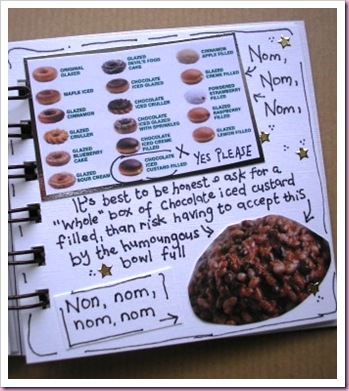 ORIGINAL
GLAZED
MAPLE ICED
GLAZED
CINNAMON
GLAZED
CRULLER
GLAZED
BLUEBERRY
CAKE
GLAZED SOUR CREAM
GLAZED
DEVIL'S FOOD
CAKE
CHOCOLATE
ICED GLAZED
CHOCOLATE
ICED CRULLER
CHOCOLATE
ICED GLAZED
WITH SPRINKLES
CHOCOLATE
ICED CREME
FILLED
CHOCOLATE
ICED CUSTARD
FILLED
CINNAMON
APPLE FILLED
GLAZED
CREME FILLED
POWDERED
STRAWBERRY
FILLED
GLAZED
RASPBERRY
FILLED
GLAZED
LEMON FILLED
X YES PLEASE
Nom,
Nom,
Nom,
It's best to be honest & ask for a
"whole" box of chocolate iced custard
filled, than risk having to accept this
by the humoungous
bowl full
Non, nom,
nom, nom